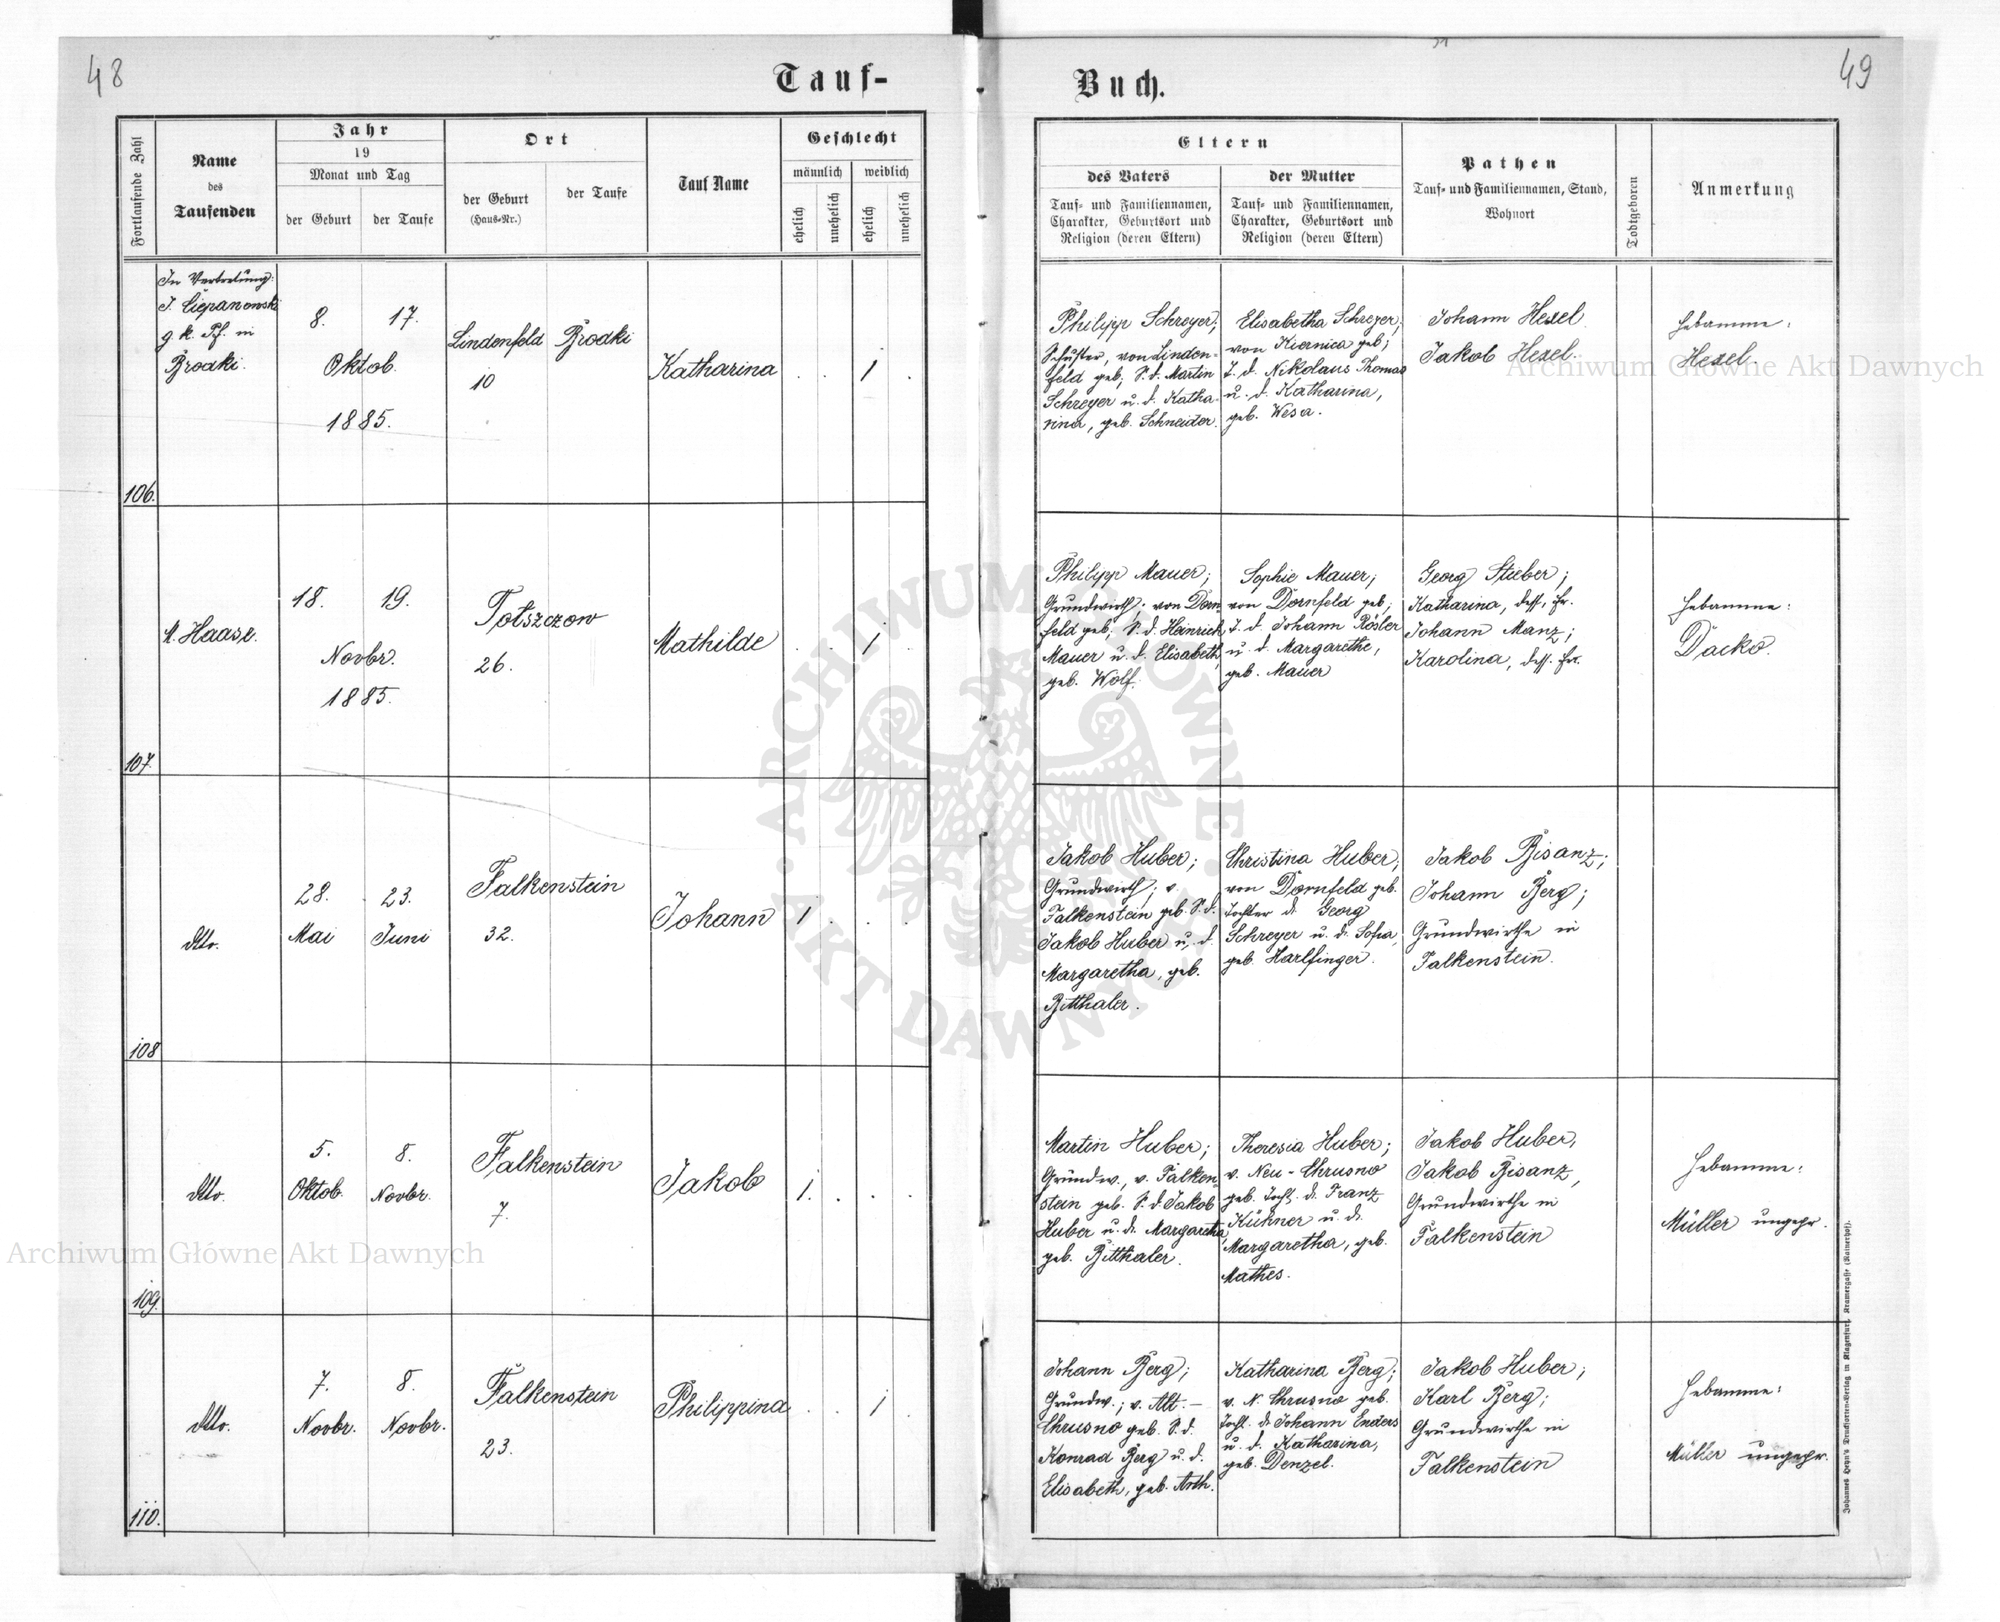 48
Tauf-
Fortlaufende Zahl
Name
des
Taufenden
Jahr
19
Monat und Tag
der Geburt
der Taufe
Ort
der Geburt
(Haus-Nr.)
der Taufe
Tauf Name
Geschlecht
männlich
weiblich
ehelich
unehelich
ehelich
unehelich
106.
In Vertretung:
J. Ciepanowski
g. k. Pf. in
Brodki.
8.
17.
Oktob.
1885.
Lindenfeld
Brodki
10
Katharina
. . 1 .
107.
M. Haase.
18.
19.
Novbr.
1885.
Tołszczow
26.
Mathilde
. . 1 .
108
dtto.
28.
23.
Mai
Juni
Falkenstein
32.
Johann
1 . . .
109.
dtto.
5.
8.
Oktob.
Novbr.
Falkenstein
7.
Jakob
1. . . .
110.
dtto.
7.
8.
Novbr.
Novbr.
Falkenstein
23.
Philippina
. . 1 .
49
Buch.
Eltern
des Vaters
Tauf- und Familiennamen,
Charakter, Geburtsort und
Religion (deren Eltern)
der Mutter
Tauf- und Familiennamen,
Charakter, Geburtsort und
Religion (deren Eltern)
Pathen
Tauf- und Familiennamen, Stand,
Wohnort
Todtgeboren
Anmerkung
Philipp Schreyer;
Schuster, von Linden-
feld geb; S. d. Martin
Schreyer u. d. Katha-
rina, geb. Schneider.
Elisabetha Schreyer;
von Kiernica geb;
T. d. Nikolaus Thomas
u. d. Katharina,
geb. Wesa.
Johann Hexel
Jakob Hexel.
Hebamme:
Hexel.
Philipp Mauer;
Grundwirth; von Dorn-
feld geb; S. d. Heinrich
Mauer u. d. Elisabeth,
geb. Wolf.
Sophie Mauer;
von Dornfeld geb;
T. d. Johann Rösler
u. d. Margarethe,
geb. Mauer
Georg Stieber;
Katharina, dess. Fr.
Johann Manz;
Karolina, dess. Fr.
Hebamme:
Dacko.
Jakob Huber;
Grundwirth; v.
Falkenstein geb. S. d.
Jakob Huber u. d.
Margaretha, geb.
Bitthaler.
Christina Huber;
von Dornfeld geb.
Tochter d. Georg
Schreyer u. d. Sofia,
geb. Harlfinger.
Jakob Bisanz;
Johann Berg;
Grundwirthe in
Falkenstein.
Martin Huber;
Grundw., v. Falken-
stein geb. S. d. Jakob
Huber u. d. Margaretha,
geb. Bitthaler.
Theresia Huber;
v. Neu-Chrusno
geb. Tocht. d. Franz
Kühner u. d.
Margaretha, geb.
Mathes.
Jakob Huber,
Jakob Bisanz,
Grundwirthe in
Falkenstein
Hebamme:
Müller ungepr.
Johann Berg;
Grundw.; v. Alt-
Chrusno geb. S. d.
Konrad Berg u. d.
Elisabeth, geb. Arth.
Katharina Berg;
v. N. Chrusno geb.
Tocht. d. Johann Enders
u. d. Katharina,
geb. Denzel.
Jakob Huber;
Karl Berg;
Grundwirthe in
Falkenstein
Hebamme:
Müller ungepr.
Johannes Heyn's Drucksorten-Verlag in Klagenfurt, Kramergasse (Rainerhof).
Archiwum Główne Akt Dawnych
Archiwum Główne Akt Dawnych
ARCHIWUM GŁÓWNE · AKT DAWNYCH ·